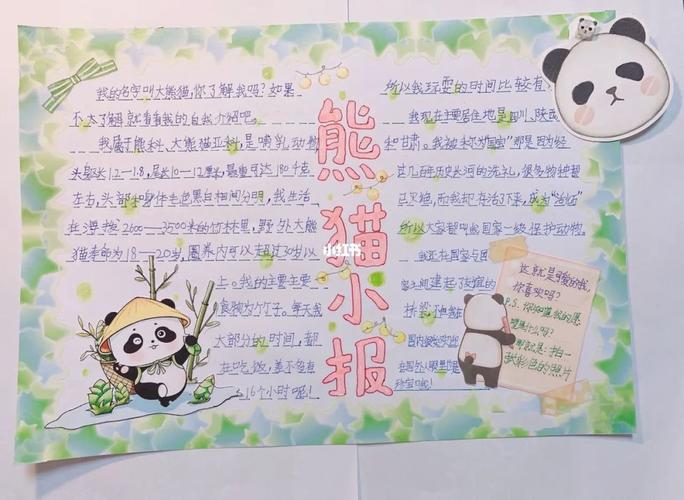 我的名字叫大熊猫,你了解我吗?如果
不太了解,就看看我的自我介绍吧。
我属于熊科、大熊猫亚科,是哺乳动物
头躯长1.2—1.8,尾长10—12厘米,最重可达180千克
左右,头部和身体毛色黑白相间分明,我生活
在海拔2600—3500米的竹林里,野外大熊
猫寿命为18—20岁,圈养内可以超过30岁以
上。我的主要主要
食物为竹子。每天我
大部分的时间,都
在吃饭,差不多有
16个小时呢!
熊猫小报
小红书
所以我玩耍的时间比较有
我现在主要居住地是四川、陕西
和甘肃。我被称为"国宝"那是因为经
过几百年历史长河的洗礼,很多物种都
已灭绝,而我却存活了下来,成为"活化石"
所以大家都叫我国家一级保护动物。
我还在国家与国
家之间建起了友谊的
桥梁,不但我在
国内被欢迎
在国外人眼里也是
珍宝呢!
这就是可爱的我,
你喜欢吗?
P.S. 你知道我的愿
望是什么吗?
那就是:拍一
张彩色的照片